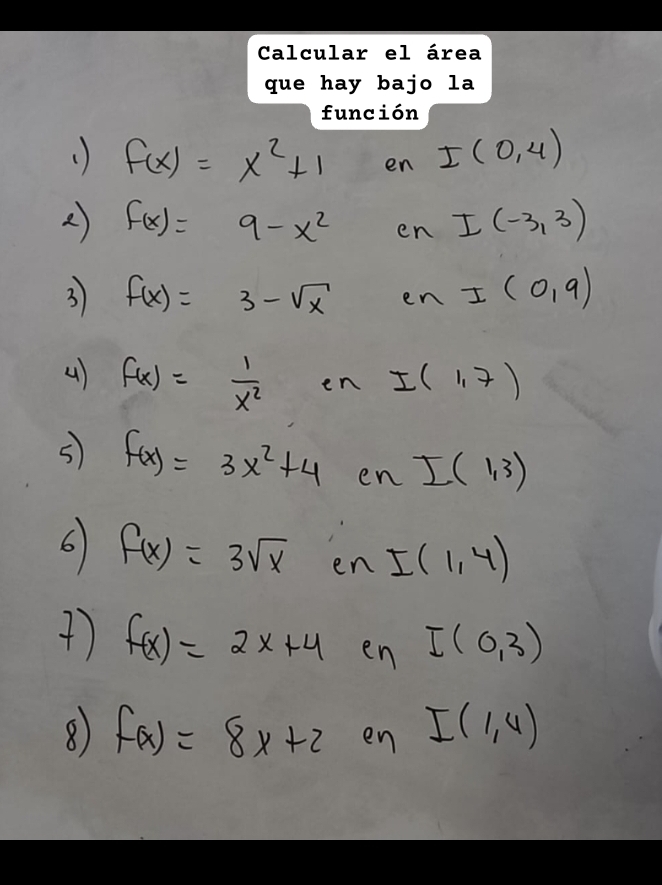 Calcular el área
que hay bajo la
función
1) f(x) = x²+1 en I(0,4)
2) f(x)= 9-x² en I(-3,3)
3) f(x)= 3-√x en I(0,9)
4) f(x)= 1/x² en I(1,7)
5) f(x)= 3x²+4 en I(1,3)
6) f(x) = 3√x en I(1,4)
7) f(x)= 2x+4 en I(0,3)
8) f(x)= 8x+2 en I(1,4)